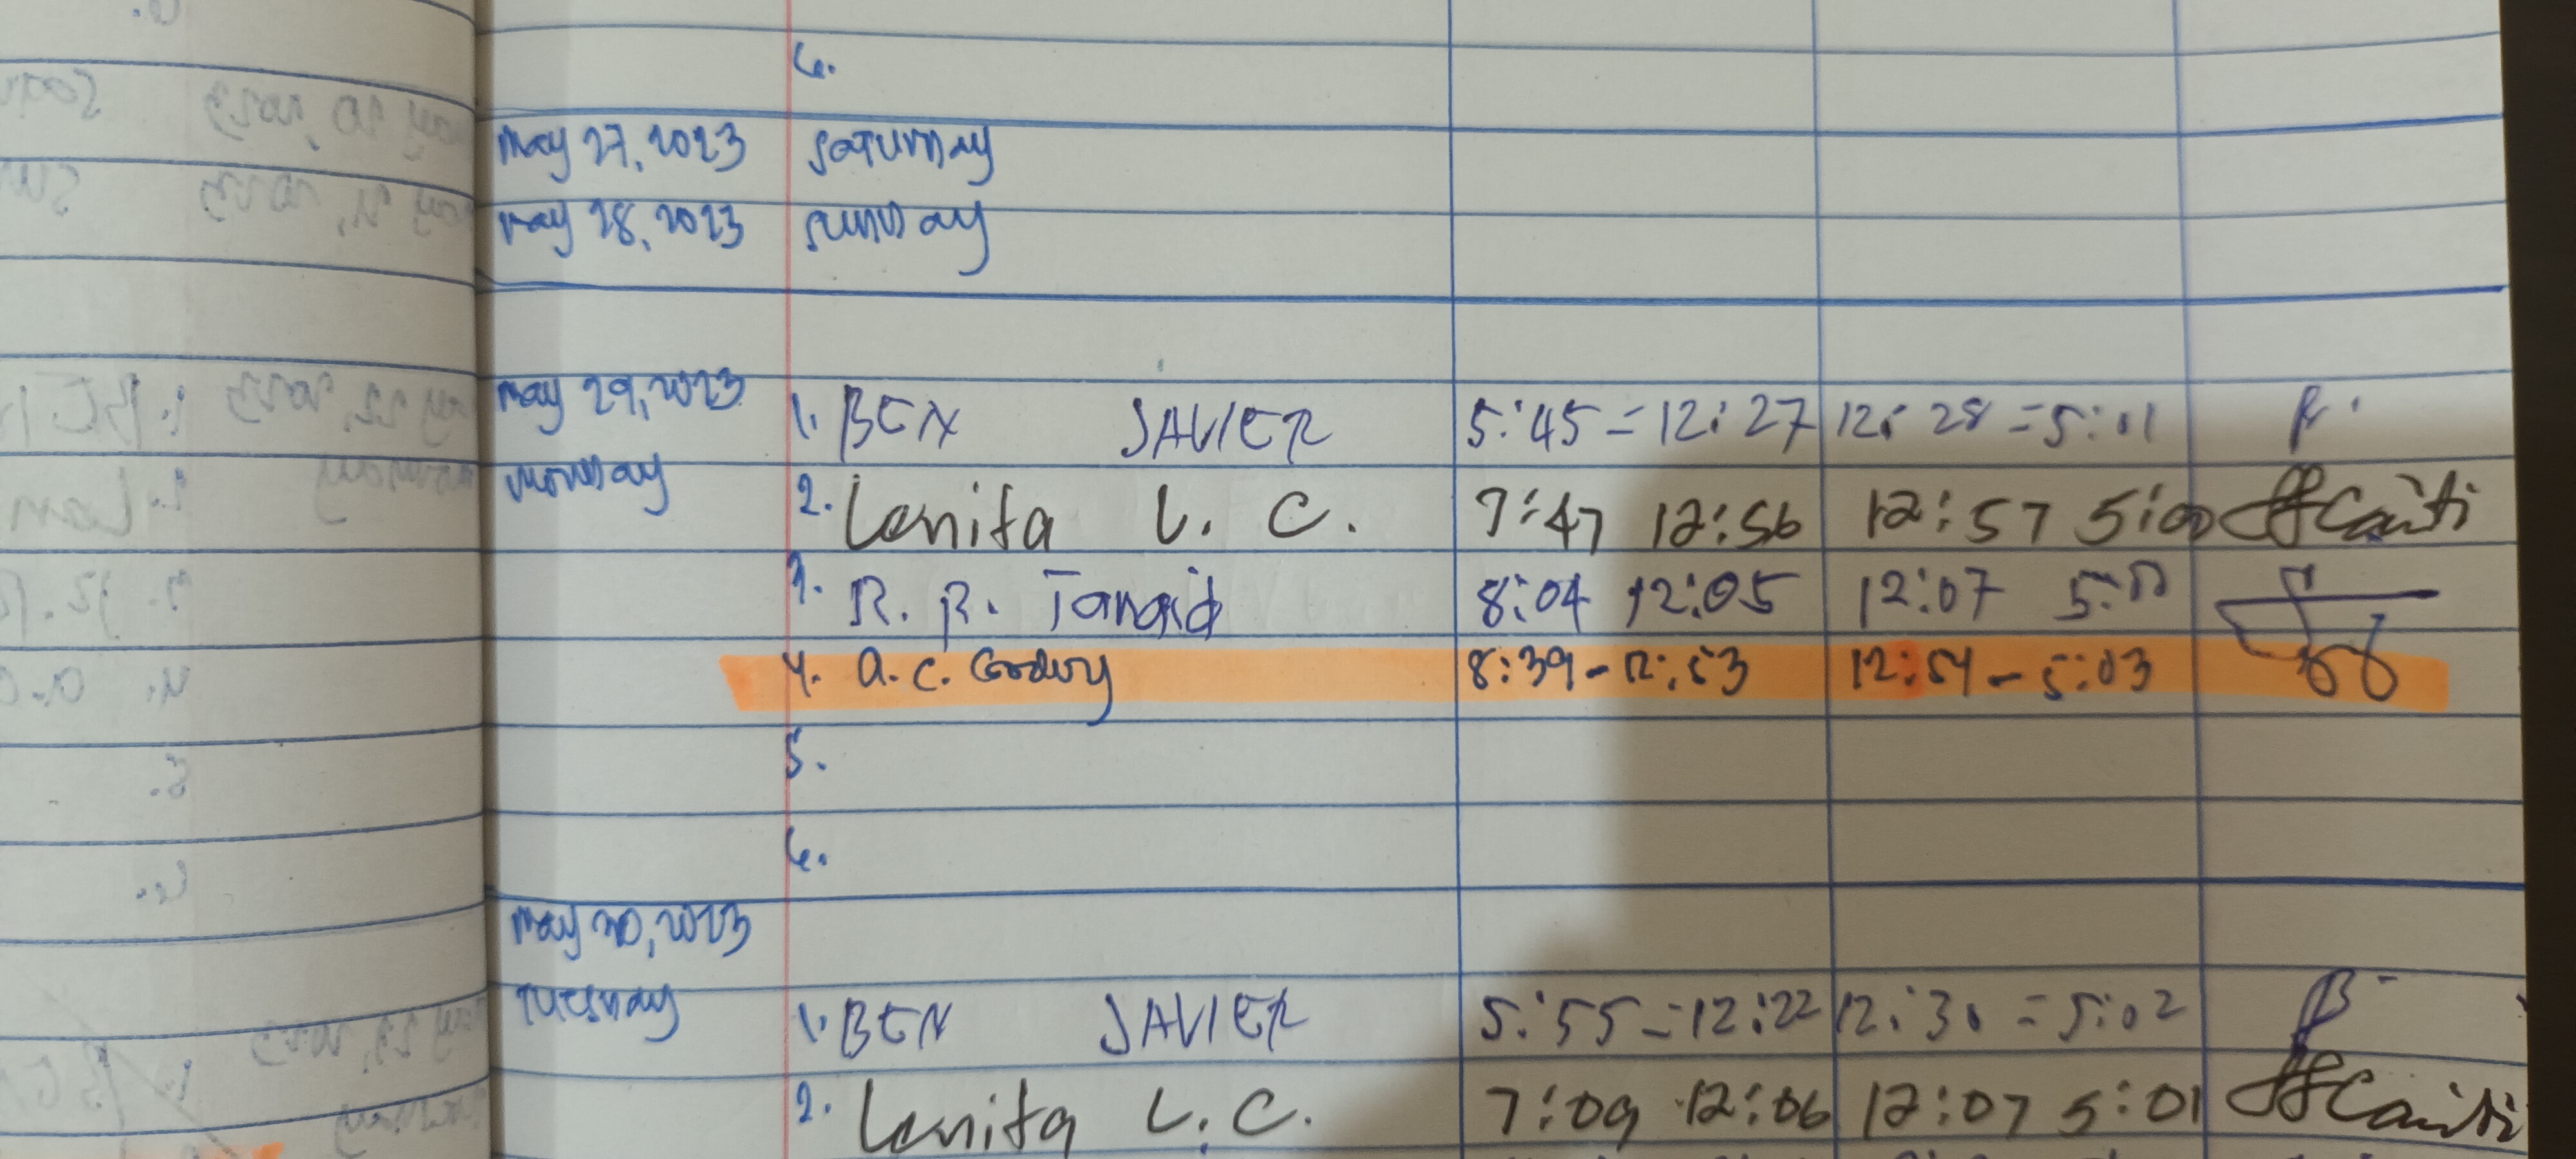 6.
may 27, 2023 saturday
may 28, 2023 sunday
may 29, 2023 1. BEN JAVIER 5:45 = 12:27 12:28 = 5:01
monday 2. Lenita L. C. 7:47 12:56 12:57 5:00
3. R. R. 8:04 12:05 12:07
4. a. c. Godoy 8:39 - 12:53 12:54 - 5:03
5.
6.
may 30, 2023
tuesday 1. BEN JAVIER 5:55 = 12:22 12:30 = 5:02
2. Lenita L. C. 7:09 12:06 12:07 5:01